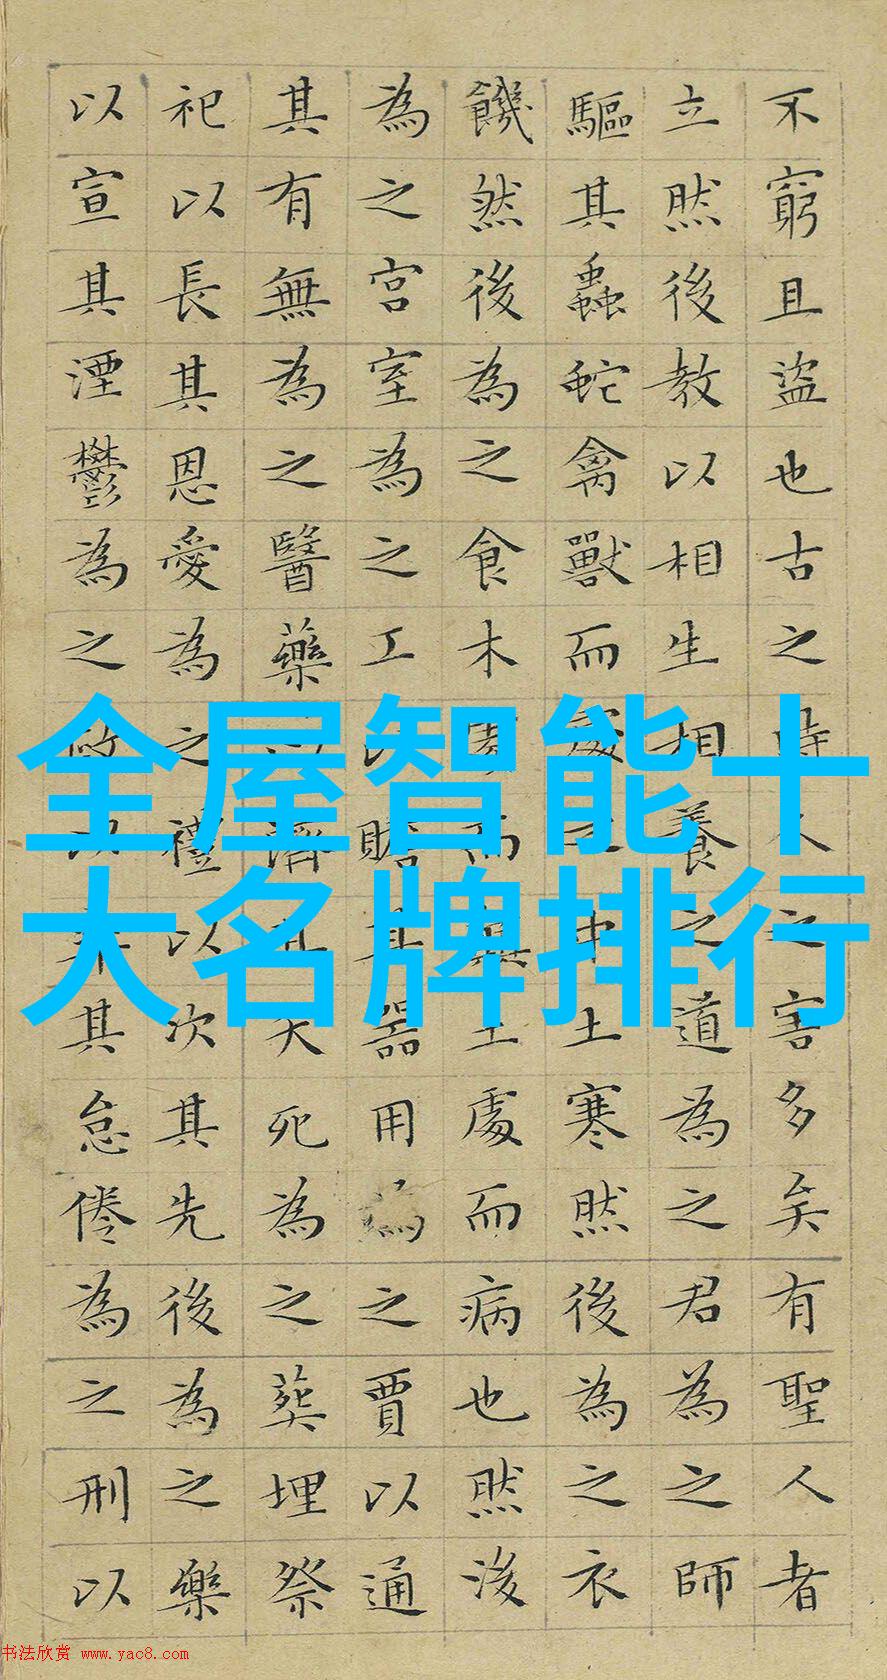 不窮且盜也古之時人之害多矣有聖人者
立然後教以相生相養之道為之君為之師
驅其蟲蛇禽獸而處之中土寒然後為之衣
饑然後為之食木處而土處而病也然後
為之宮室為之工以贍其器用為之賈以通
其有無為之醫藥以濟其夭死為之葬埋祭
祀以長其恩愛為之禮以次其先後為之樂
以宣其湮鬱為之政以率其怠倦為之刑以
全屋智能十
大名牌排行
书法欣赏 www.yac8.com